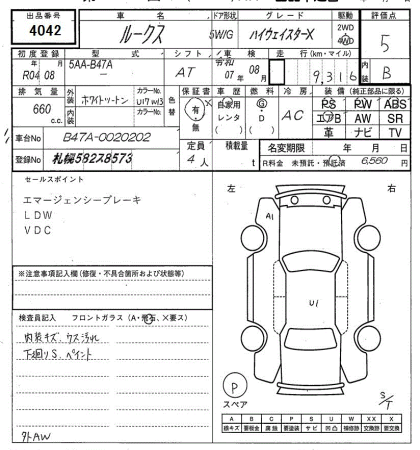 出品番号 車名 ドア形状 グレード 駆動 評価点
4042 ルークス 5W/G ハイウェイスターX 2WD 4WD 5
初度登録 型式 シフト 車検 走行(km・マイル) 内装
R04年 08月 5AA-B47A AT 令和07年 08月 9,316 B
排気量 外装 カラーNo. 色替 保証書 車歴 燃料 冷房 装備(純正部品に限る)
660 c.c. ホワイトツートン U17 W13 有・無 自家用 レンタ ( ) G・D ( ) AC PS PW ABS
内装 カラーNo. エアB AW SR
革 ナビ TV
車台No B47A-0020202 定員 積載量 名変期限 年 月 日
登録No 札幌582ス8573 4人 t R料金 未預託・預託済 6,560円
セールスポイント
エマージェンシーブレーキ
LDW
VDC
左 右
A1
U1
※注意事項記入欄(修復・不具合箇所および状態等)
検査員記入 フロントガラス(A・飛石、×要ス)
内装キズ、ウス汚れ
下廻りS、ペイント
P
スペア
S/T
外AW
A B C P S U W X XX X
線キズ 要板金 腐蝕 要塗装 サビ 凹凸 補修跡 交換跡 要交換